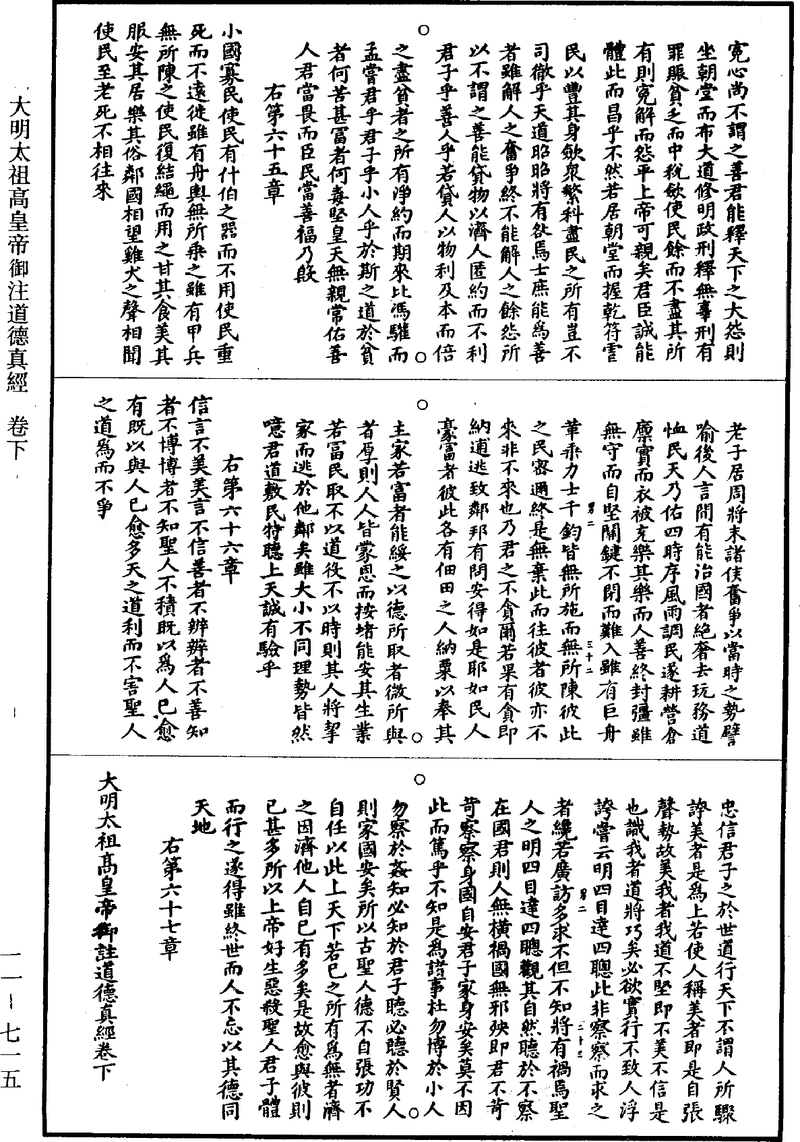 寬心尚不謂之善君能釋天下之大怨則
坐朝堂而布大道修明政刑釋無辜刑有
罪賑貧乏而中稅斂使民餘而不盡其所
有則寬解而怨平上帝可親矣君臣誠能
體此而昌乎不然若居朝堂而握乾符雪
民以豐其身斂眾繁科盡民之所有豈不
司徹乎天道昭昭將有欲焉士庶能為善
者雖解人之奮爭終不能解人之餘怨所
以不謂之善能貸物以濟人匿約而不利
君子乎善人乎若貸人以物利及本而倍
之盡貧者之所有淨約而期來比馮驩而
孟嘗君乎君子乎小人乎於斯之道於貧
者何苦甚富者何毒堅皇天無親常佑善
人君當畏而臣民當善福乃殷
右第六十五章
小國寡民使民有什伯之器而不用使民重
死而不遠徙雖有舟輿無所乘之雖有甲兵
無所陳之使民復結繩而用之甘其食美其
服安其居樂其俗鄰國相望雞犬之聲相聞
使民至老死不相往來
老子居周將末諸侯奮爭以當時之勢譬
喻後人言問有能治國者絕奢去玩務道
恤民天乃佑四時序風雨調民遂耕營倉
廩實而衣被充樂其樂而人善終封疆雖
無守而自堅關鍵不閉而難入雖有巨舟
革乘力士千鈞皆無所施而無所陳彼此
之民密邇終是無棄此而往彼者彼亦不
來非不來也乃君之不貪爾若果有貪即
納逋逃致鄰邦有問安得如是耶如民人
豪富者彼此各有佃田之人納粟以奉其
主家若富者能綏之以德所取者微所與
者厚則人人皆蒙恩而按堵能安其生業
若富民取不以道役不以時則其人將挈
家而逃於他鄰矣雖大小不同理勢皆然
噫君道敷民特聽上天誠有驗乎
右第六十六章
信言不美美言不信善者不辨辯者不善知
者不博博者不知聖人不積既以為人已愈
有既以與人已愈多天之道利而不害聖人
之道為而不爭
忠信君子之於世道行天下不謂人所驟
誇美者是為上若使人稱美者即是自張
聲勢故美我者我道不堅即不美不信是
也譏我者道將巧矣必欲實行不致人浮
誇嘗云明四目達四聰此非察察而求之
者纔若廣訪多求不但不知將有禍焉聖
人之明四目達四聰觀其自然聽於不察
在國君則人無橫禍國無邪殃即君不苛
苛察察身國自安君子家身安矣莫不因
此而篤乎不知是為諸事杜勿博於小人
勿察於姦知必知於君子聽必聽於賢人
則家國安矣所以古聖人德不自張功不
自任以此上天下若已之所有為無者濟
之因濟他人自已有多矣是故愈與彼則
已甚多所以上帝好生惡殺聖人君子體
而行之遂得雖終世而人不忘以其德同
天地
右第六十七章
大明太祖高皇帝御註道德真經卷下
大明太祖高皇帝御注道德真經 卷下
一一－七一五